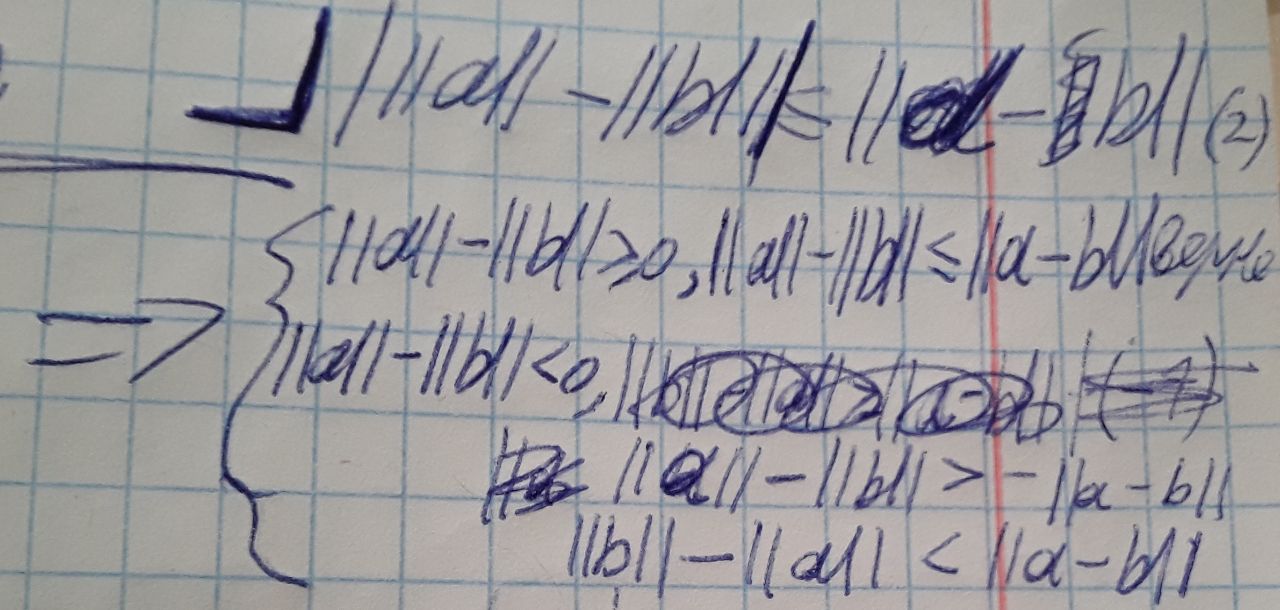 | ||a|| - ||b|| | ≤ ||a - b|| (2)
⇒ { ||a|| - ||b|| ≥ 0, ||a|| - ||b|| ≤ ||a - b||
||a|| - ||b|| < 0,
||a|| - ||b|| > - ||a - b||
||b|| - ||a|| < ||a - b||